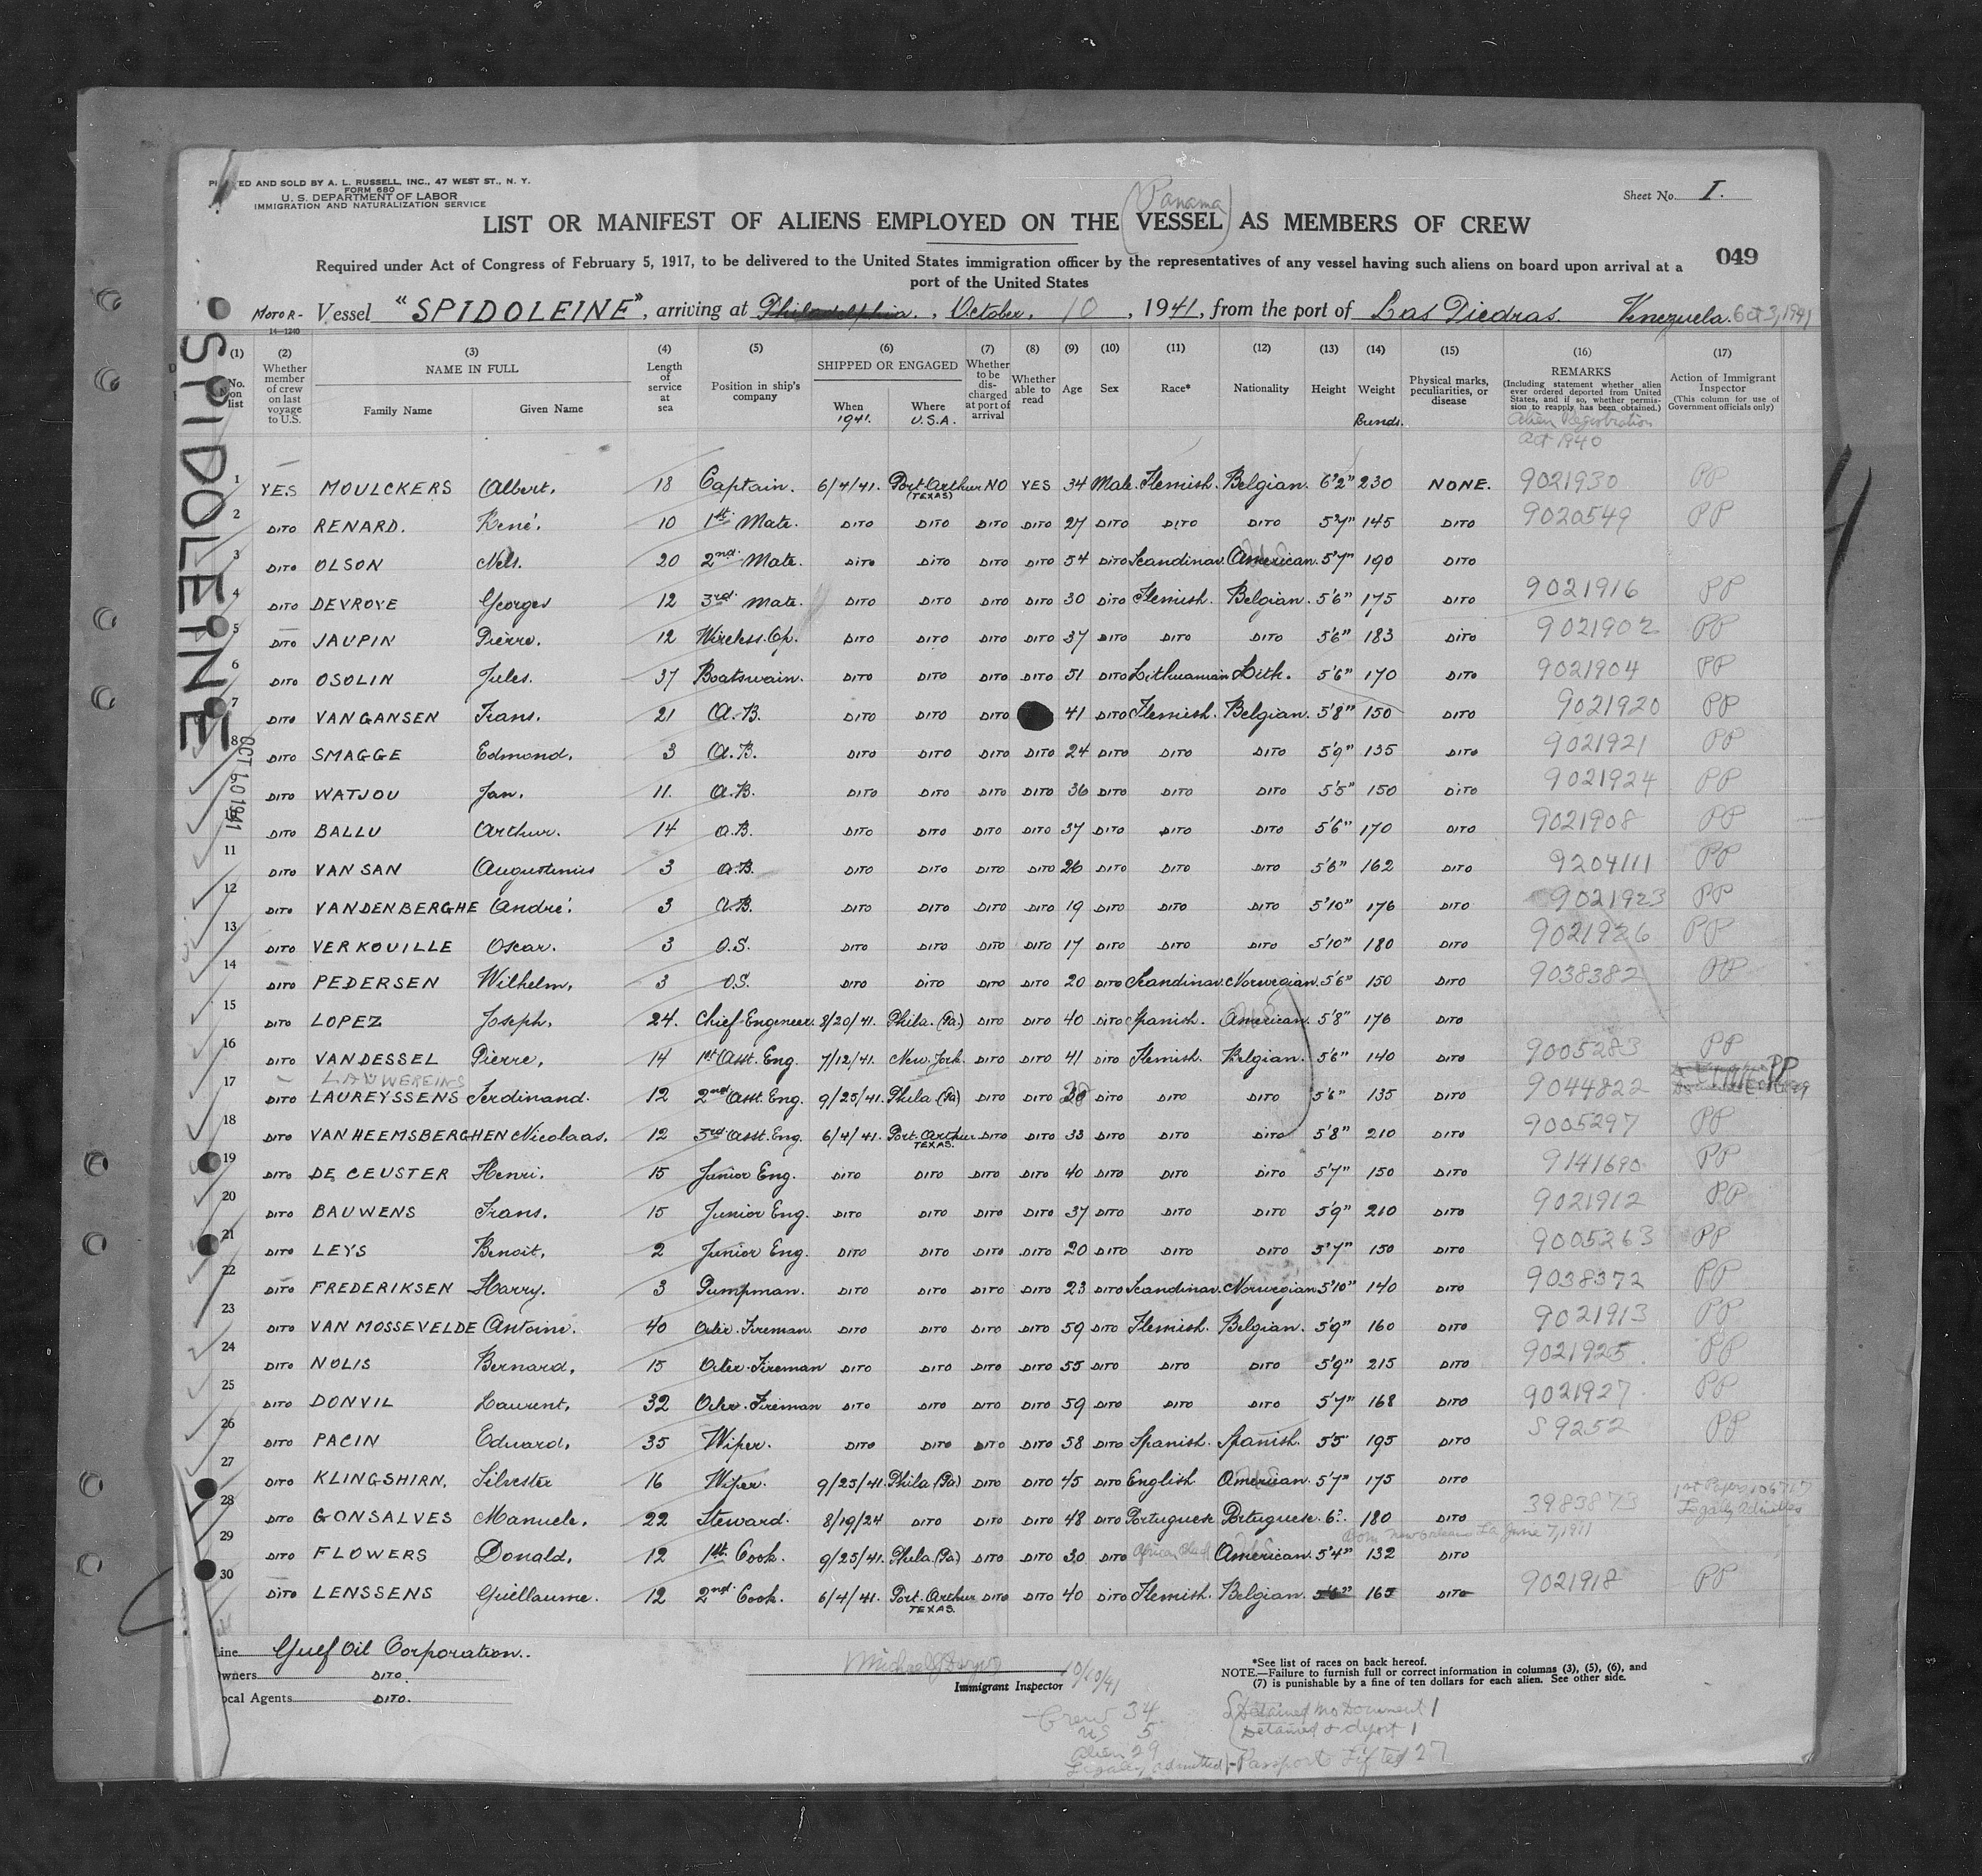 PRINTED AND SOLD BY A. L. RUSSELL, INC., 47 WEST ST., N. Y.
FORM 680
U. S. DEPARTMENT OF LABOR
IMMIGRATION AND NATURALIZATION SERVICE
Sheet No. I.
(Panama)
LIST OR MANIFEST OF ALIENS EMPLOYED ON THE VESSEL AS MEMBERS OF CREW
049
Required under Act of Congress of February 5, 1917, to be delivered to the United States immigration officer by the representatives of any vessel having such aliens on board upon arrival at a
port of the United States
MOTOR- Vessel "SPIDOLEINE", arriving at Philadelphia., October, 10, 1941, from the port of Las Piedras. Venezuela. Oct 3, 1941
14—1240
SPIDOLEINE
OCT 10 1941
(1) No. on list (2) Whether member of crew on last voyage to U.S. (3) NAME IN FULL Family Name Given Name (4) Length of service at sea (5) Position in ship's company (6) SHIPPED OR ENGAGED When 1941. Where U.S.A. (7) Whether to be discharged at port of arrival (8) Whether able to read (9) Age (10) Sex (11) Race* (12) Nationality (13) Height (14) Weight (15) Physical marks, peculiarities, or disease (16) REMARKS (Including statement whether alien ever ordered deported from United States, and if so, whether permission to reapply has been obtained.) Alien Registration Act 1940 (17) Action of Immigrant Inspector (This column for use of Government officials only)
1 YES MOULCKERS Albert. 18 Captain. 6/4/41. Port-Arthur (TEXAS) NO YES 34 Male. Flemish. Belgian. 6'2" 230 NONE. 9021930 PP
2 DITO RENARD. René. 10 1st Mate. DITO DITO DITO DITO 27 DITO DITO DITO 5'7" 145 DITO 9020549 PP
3 DITO OLSON Nels. 20 2nd Mate. DITO DITO DITO DITO 54 DITO Scandinav. American. 5'7" 190 DITO
4 DITO DEVROYE Georges 12 3rd Mate. DITO DITO DITO DITO 30 DITO Flemish. Belgian. 5'6" 175 DITO 9021916 PP
5 DITO JAUPIN Pierre. 12 Wireless.Op. DITO DITO DITO DITO 37 DITO DITO DITO 5'6" 183 DITO 9021902 PP
6 DITO OSOLIN Jules. 37 Boatswain. DITO DITO DITO DITO 51 DITO Lithuanian Lith. 5'6" 170 DITO 9021904 PP
7 DITO VANGANSEN Frans. 21 A.B. DITO DITO DITO 41 DITO Flemish. Belgian. 5'8" 150 DITO 9021920 PP
8 DITO SMAGGE Edmond. 3 A.B. DITO DITO DITO DITO 24 DITO DITO DITO 5'9" 135 DITO 9021921 PP
DITO WATJOU Jan. 11. A.B. DITO DITO DITO DITO 36 DITO DITO DITO 5'5" 150 DITO 9021924 PP
10 DITO BALLU Arthur. 14 A.B. DITO DITO DITO DITO 37 DITO DITO DITO 5'6" 170 DITO 9021908 PP
11 DITO VAN SAN Augustinus 3 A.B. DITO DITO DITO DITO 26 DITO DITO DITO 5'6" 162 DITO 9204111 PP
12 DITO VANDENBERGHE André. 3 A.B. DITO DITO DITO DITO 19 DITO DITO DITO 5'10" 176 DITO 9021923 PP
13 DITO VERKOUILLE Oscar. 3 O.S. DITO DITO DITO DITO 17 DITO DITO DITO 5'10" 180 DITO 9021926 PP
14 DITO PEDERSEN Wilhelm. 3 O.S. DITO DITO DITO DITO 20 DITO Scandinav. Norwegian. 5'6" 150 DITO 9038382 PP
15 DITO LOPEZ Joseph. 24. Chief-Engeneer. 8/20/41. Phila. (Pa) DITO DITO 40 DITO Spanish. American. 5'8" 176 DITO
16 DITO VANDESSEL Pierre. 14 1st Asst. Eng. 7/12/41. New. York. DITO DITO 41 DITO Flemish. Belgian. 5'6" 140 DITO 9005283 PP
LAUWEREINS
17 DITO LAUREYSSENS Ferdinand. 12 2nd Asst. Eng. 9/25/41. Phila (Pa) DITO DITO 38 DITO DITO DITO 5'6" 135 DITO 9044822 PP
18 DITO VANHEEMSBERGHEN Nicolaas. 12 3rd Asst. Eng. 6/4/41. Port. Arthur TEXAS. DITO DITO 33 DITO DITO DITO 5'8" 210 DITO 9005297 PP
19 DITO DE CEUSTER Henri. 15 Junior Eng. DITO DITO DITO DITO 40 DITO DITO DITO 5'7" 150 DITO 9141690 PP
20 DITO BAUWENS Frans. 15 Junior Eng. DITO DITO DITO DITO 37 DITO DITO DITO 5'9" 210 DITO 9021912 PP
21 DITO LEYS Benoit. 2 Junior Eng. DITO DITO DITO DITO 20 DITO DITO DITO 5'7" 150 DITO 9005263 PP
22 DITO FREDERIKSEN Harry. 3 Pumpman. DITO DITO DITO DITO 23 DITO Scandinav. Norwegian 5'10" 140 DITO 9038372 PP
23 DITO VAN MOSSEVELDE Antoine. 40 Oiler.Fireman. DITO DITO DITO DITO 59 DITO Flemish. Belgian. 5'9" 160 DITO 9021913 PP
24 DITO NOLIS Bernard. 15 Oiler.Fireman DITO DITO DITO DITO 55 DITO DITO DITO 5'9" 215 DITO 9021925 PP
25 DITO DONVIL Laurent. 32 Oiler.Fireman DITO DITO DITO DITO 59 DITO DITO DITO 5'7" 168 DITO 9021927 PP
26 DITO PACIN Eduard. 35 Wiper. DITO DITO DITO DITO 58 DITO Spanish. Spanish. 5'5 195 DITO S 9252 PP
27 DITO KLINGSHIRN. Silvester 16 Wiper. 9/25/41. Phila (Pa) DITO DITO 45 DITO English American. 5'7" 175 DITO
28 DITO GONSALVES Manuele. 22 Steward. 8/19/24 DITO DITO DITO 48 DITO Portuguese Portuguese. 6'. 180 DITO 3983873 1st Papers Legally admitted
Born New Orleans La June 7, 1911
29 DITO FLOWERS Donald. 12 1st Cook. 9/25/41. Phila (Pa) DITO DITO 30 DITO African Black American. 5'4" 132 DITO
30 DITO LENSSENS Guillaume. 12 2nd Cook. 6/4/41. Port. Arthur TEXAS. DITO DITO 40 DITO Flemish. Belgian. 5'6" 165 DITO 9021918 PP
Line Gulf Oil Corporation..
Owners DITO
Local Agents DITO.
10/10/41
Immigrant Inspector
*See list of races on back hereof.
NOTE.—Failure to furnish full or correct information in columns (3), (5), (6), and
(7) is punishable by a fine of ten dollars for each alien. See other side.
Crew 34
US 5
Alien 29
Legally admitted 1
Detained No Document 1
Detained & deport 1
Passports Lifted 27